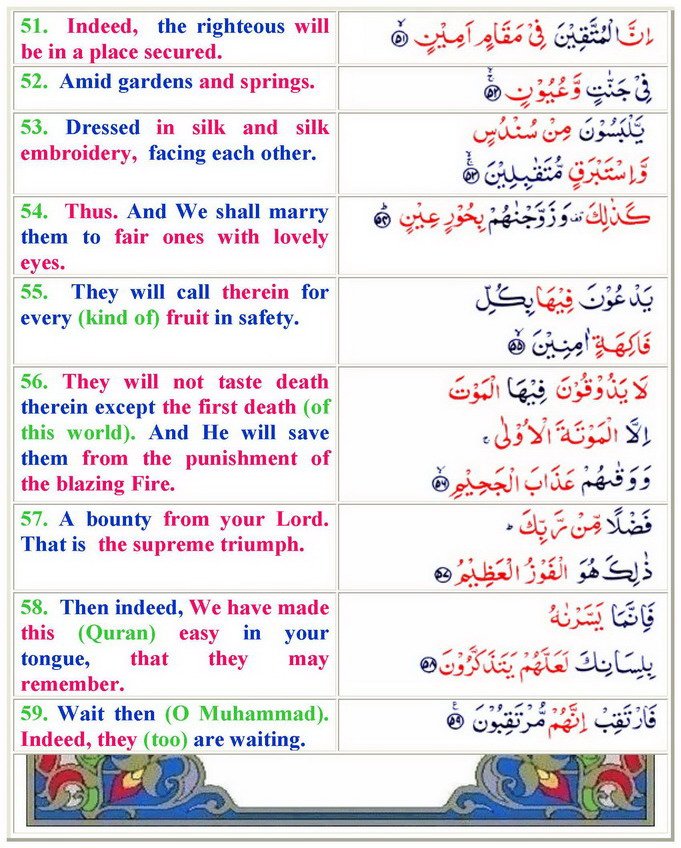 51. Indeed, the righteous will
be in a place secured.
اِنَّ الْمُتَّقِيْنَ فِىْ مَقَامٍ اَمِيْنٍۙ ۵۱
52. Amid gardens and springs.
فِىْ جَنّٰتٍ وَّعُيُوْنٍ ۚۙ ۵۲
53. Dressed in silk and silk
embroidery, facing each other.
يَّلْبَسُوْنَ مِنْ سُنْدُسٍ
وَّاِسْتَبْرَقٍ مُّتَقٰبِلِيْنَ ۚۙ ۵۳
54. Thus. And We shall marry
them to fair ones with lovely
eyes.
كَذٰلِكَ وَزَوَّجْنٰهُمْ بِحُوْرٍ عِيْنٍؕ ۵۴
55. They will call therein for
every (kind of) fruit in safety.
يَدْعُوْنَ فِيْهَا بِكُلِّ
فَاكِهَةٍ اٰمِنِيْنَۙ ۵۵
56. They will not taste death
therein except the first death (of
this world). And He will save
them from the punishment of
the blazing Fire.
لَا يَذُوْقُوْنَ فِيْهَا الْمَوْتَ
اِلَّا الْمَوْتَةَ الْاُوْلٰى ۚ
وَوَقٰٮهُمْ عَذَابَ الْجَحِيْمِۙ ۵۶
57. A bounty from your Lord.
That is the supreme triumph.
فَضْلًا مِّنْ رَّبِّكَ ؕ
ذٰلِكَ هُوَ الْفَوْزُ الْعَظِيْمُ ۵۷
58. Then indeed, We have made
this (Quran) easy in your
tongue, that they may
remember.
فَاِنَّمَا يَسَّرْنٰهُ
بِلِسَانِكَ لَعَلَّهُمْ يَتَذَكَّرُوْنَ ۵۸
59. Wait then (O Muhammad).
Indeed, they (too) are waiting.
فَارْتَقِبْ اِنَّهُمْ مُّرْتَقِبُوْنَ ۵۹